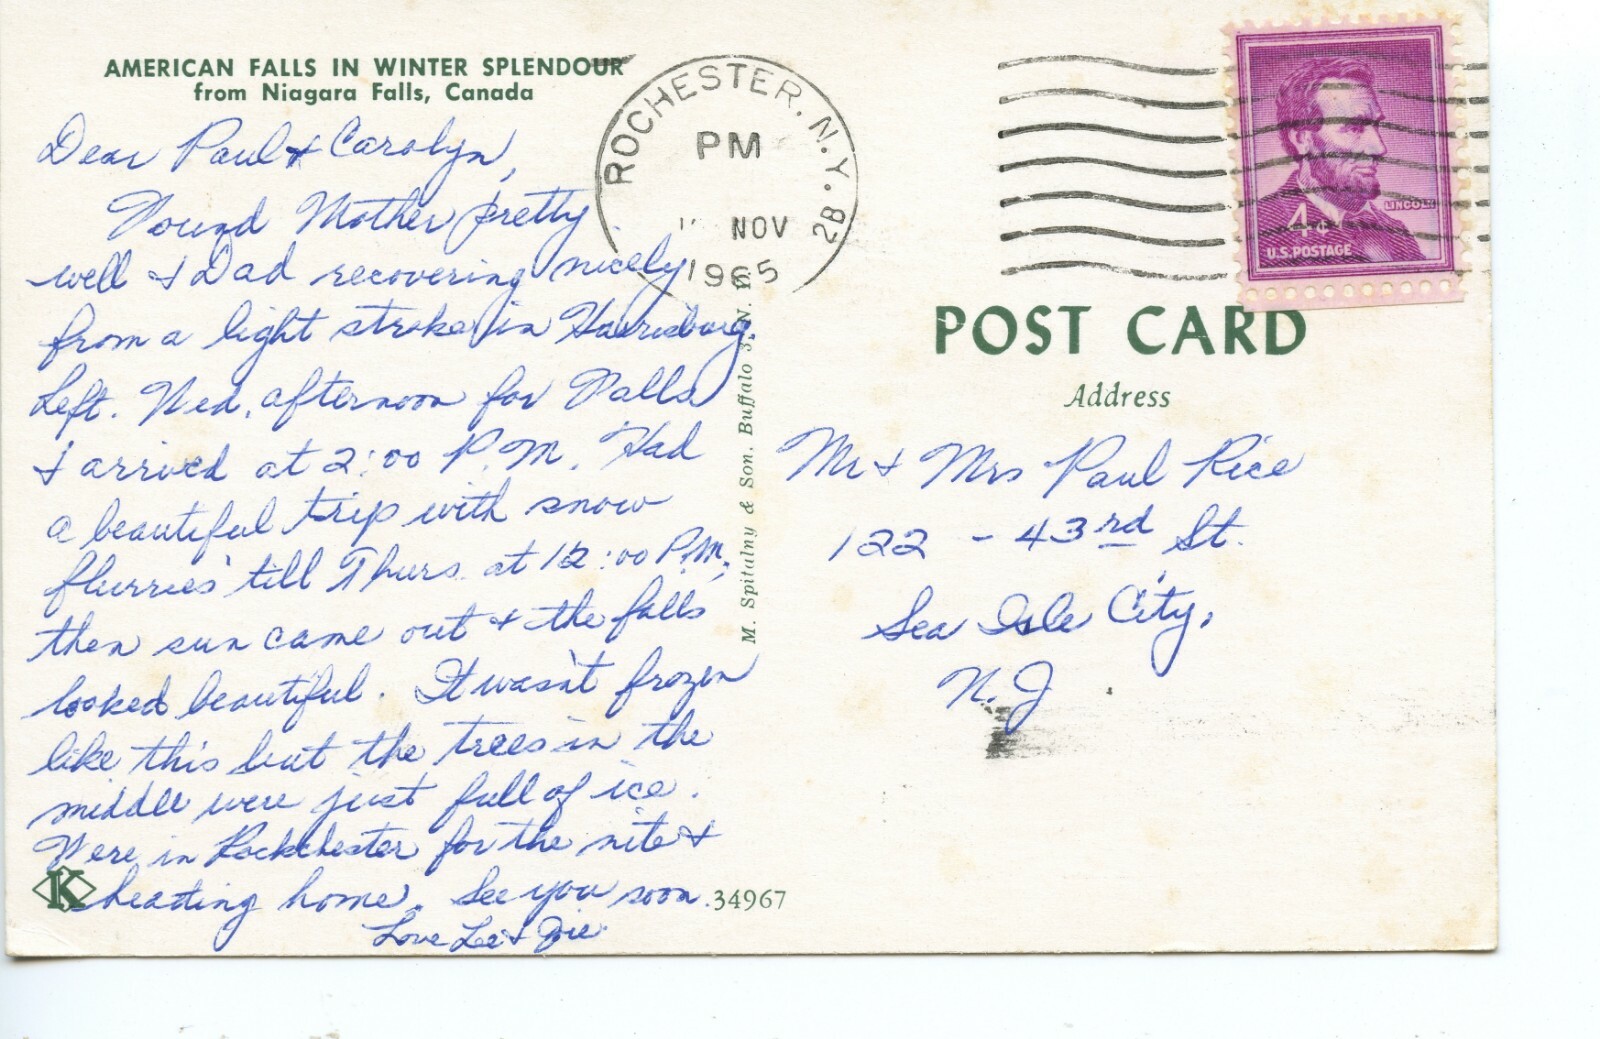 AMERICAN FALLS IN WINTER SPLENDOUR
from Niagara Falls, Canada
Dear Paul & Carolyn,
Found Mother pretty
well & Dad recovering nicely
from a light stroke in Harrisburg.
Left. Wed. afternoon for Falls
& arrived at 2:00 P.M. Had
a beautiful trip with snow
flurries 'till Thurs. at 12:00 P.M.
then sun came out & the falls
looked beautiful. It wasn't frozen
like this but the trees in the
middle were just full of ice.
Were in Rockchester for the nite &
heading home. See you soon.
Love Lee &
K
34967
M. Spitalny & Son, Buffalo 3, N. Y.
ROCHESTER, N.Y. 2B
PM
NOV
1965
LINCOLN
4¢
U.S. POSTAGE
POST CARD
Address
Mr & Mrs Paul Rice
122 - 43rd St.
Sea Isle City,
N.J